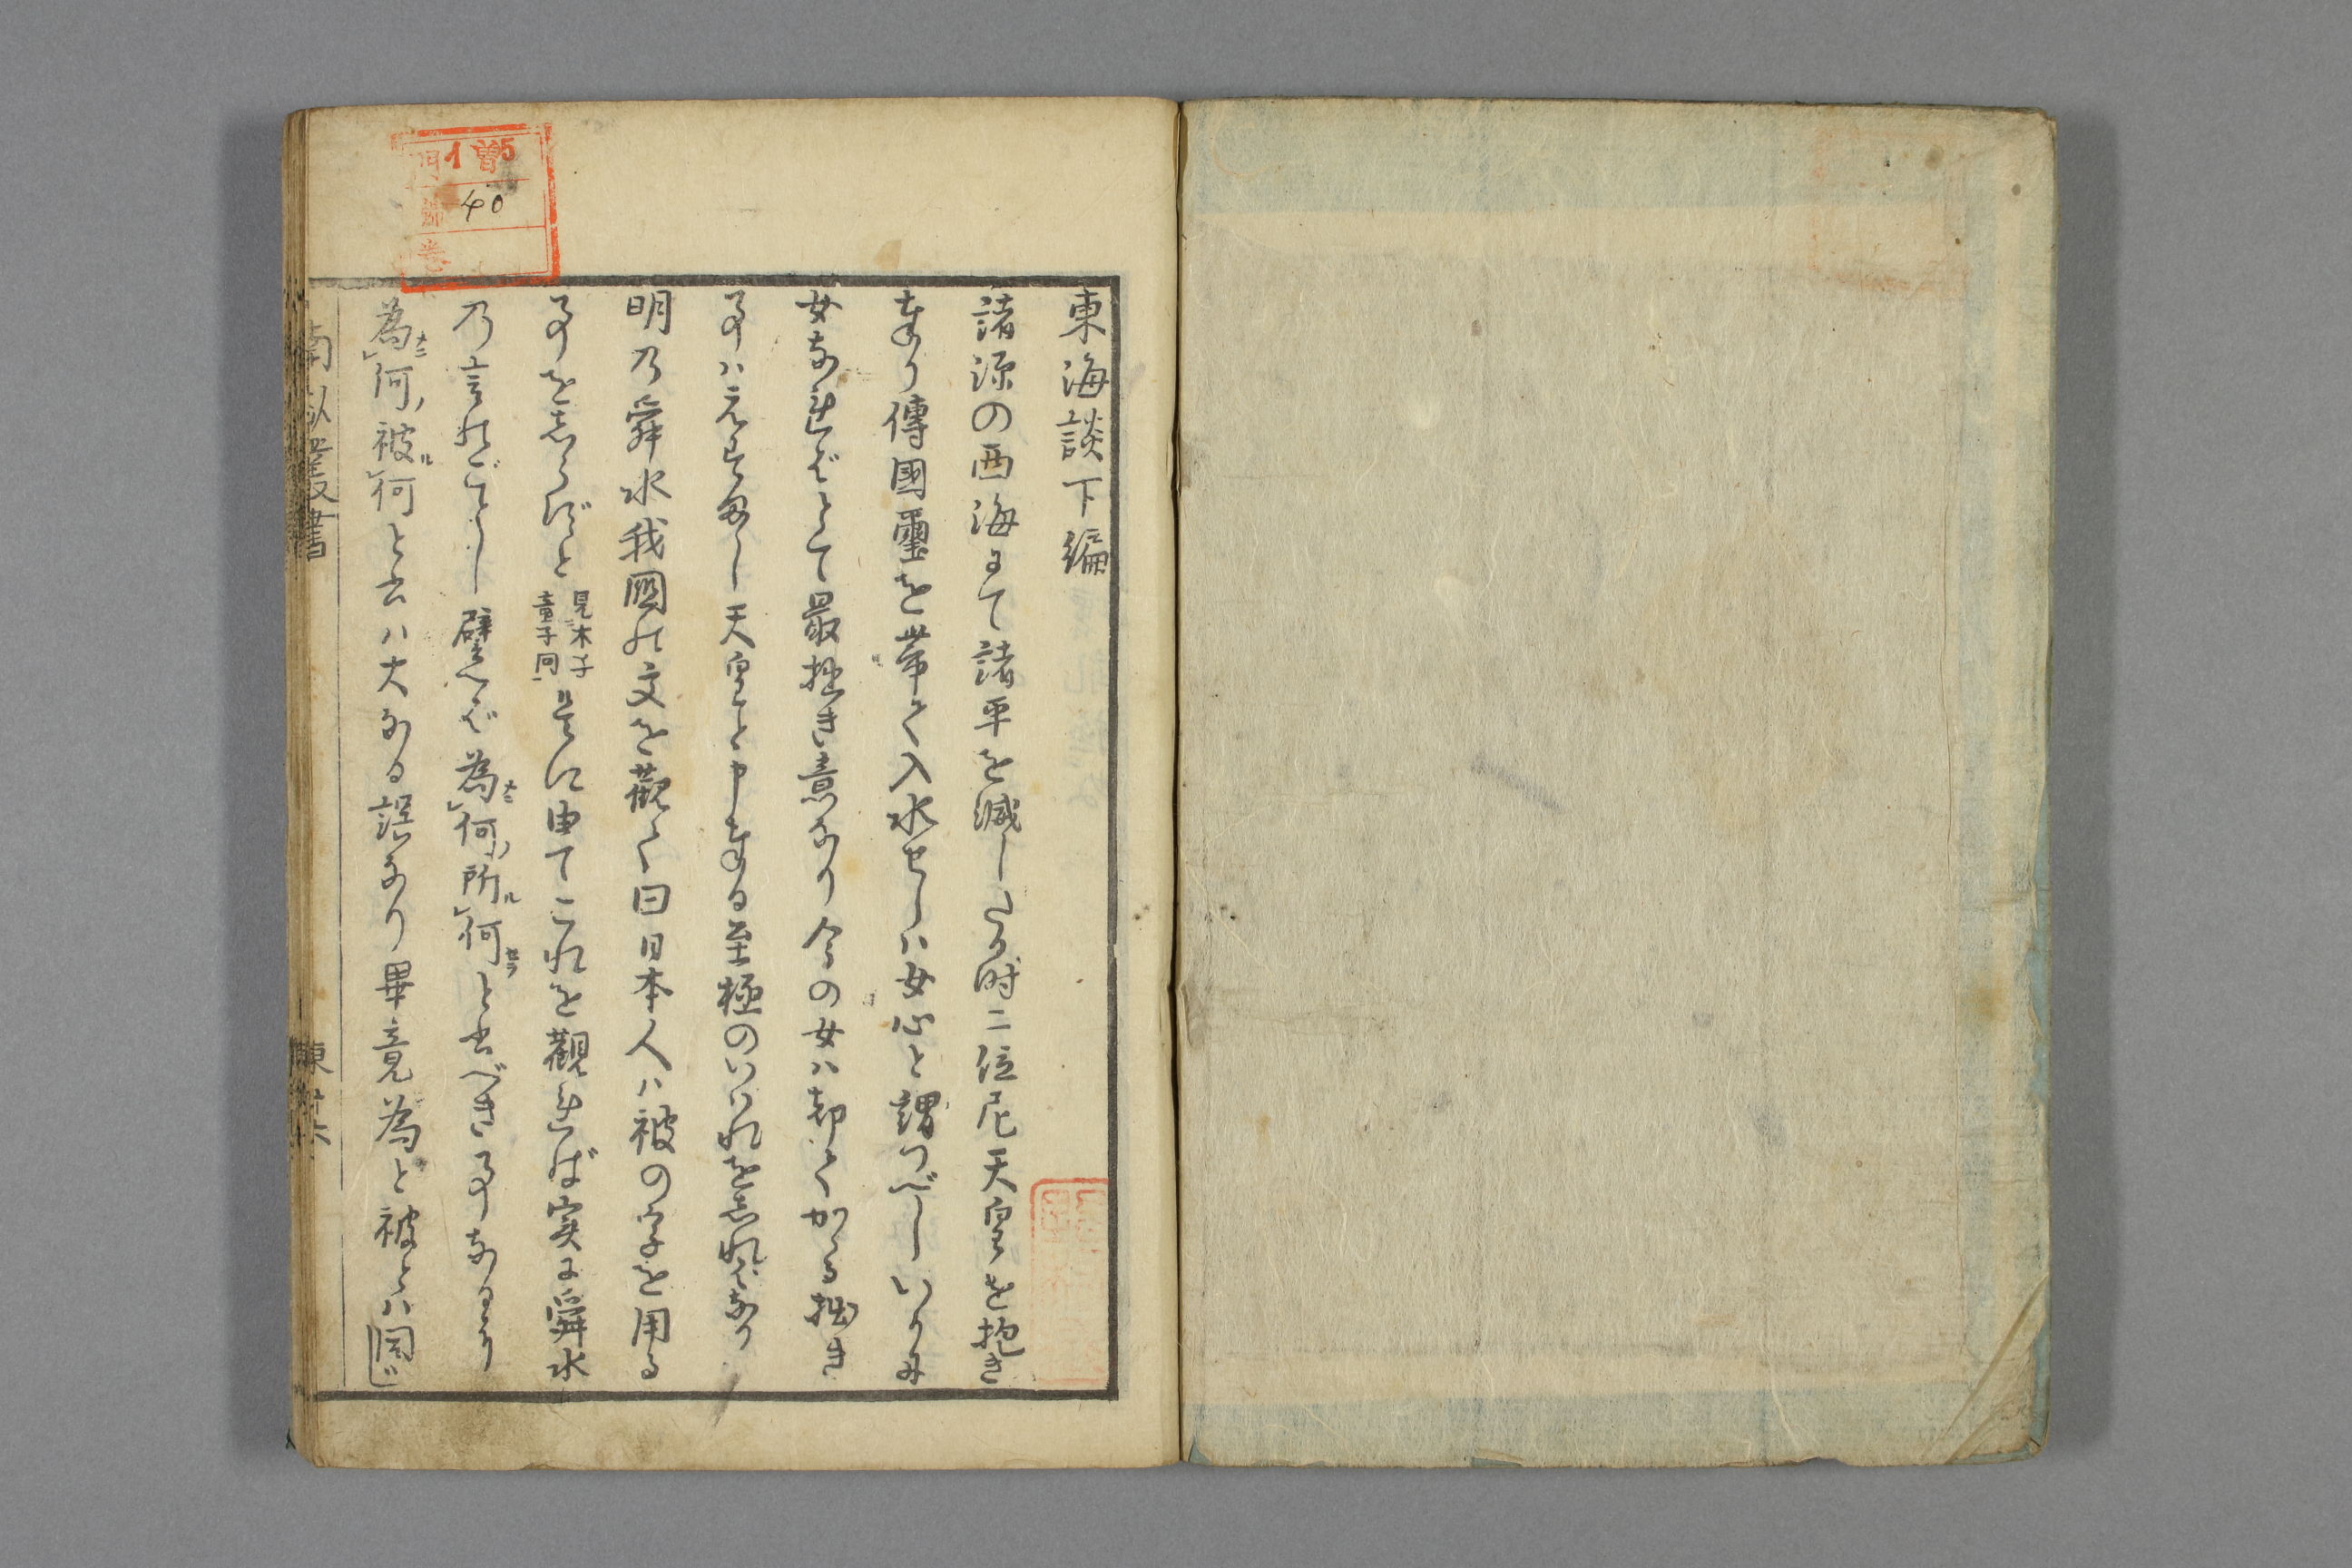 東海談下編
諸源の西海にて諸平を滅したる時二位尼天皇を抱き
奉り傳國璽を帯て入水せしハ女心と謂つべしいかに
女なればとて最拙き意なり今の女ハ却てかゝる拙き
事ハえすまし天皇と申奉る至極のいハれを志れバなり
明乃舜水我國の文を觀て曰日本人ハ被の字を用る
事を志らずと
見木子
童子問
是に由てこれを觀れば実に舜水
乃言のごとし譬へば為ナニレ何ノ所ルレ何セラと云べき事なるを
為ナニレ何ノ被ルレ何と云ハ大なる誤なり畢竟為と被とハ同じ
叢書
東
40
5
曽
イ
門
號
巻